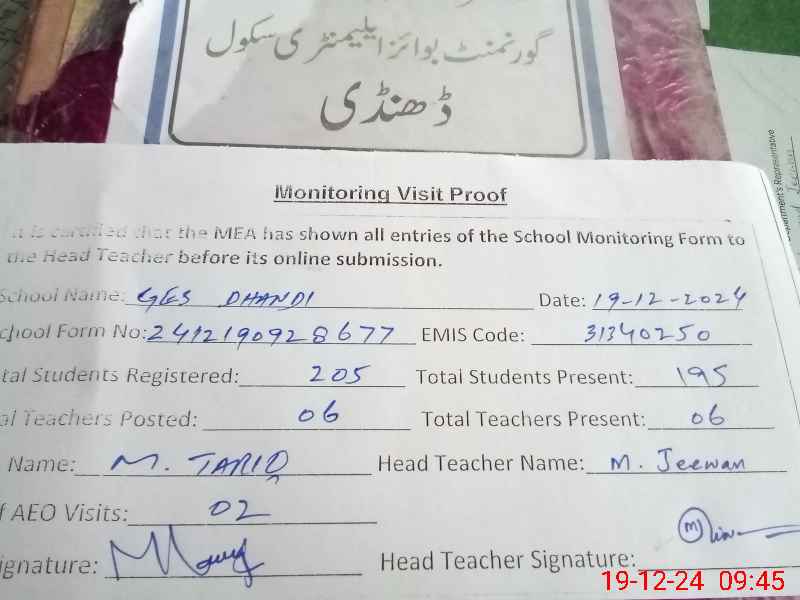 گورنمنٹ بوائز ایلیمنٹری سکول
ڈھنڈی
Monitoring Visit Proof
It is certified that the MEA has shown all entries of the School Monitoring Form to
the Head Teacher before its online submission.
School Name: GES DHANDI Date: 19-12-2024
chool Form No: 2412190928677 EMIS Code: 31340250
tal Students Registered: 205 Total Students Present: 195
al Teachers Posted: 06 Total Teachers Present: 06
Name: M. TARIQ Head Teacher Name: M. Jeewan
f AEO Visits: 02
ignature: Head Teacher Signature:
19-12-24 09:45
partment's Representative